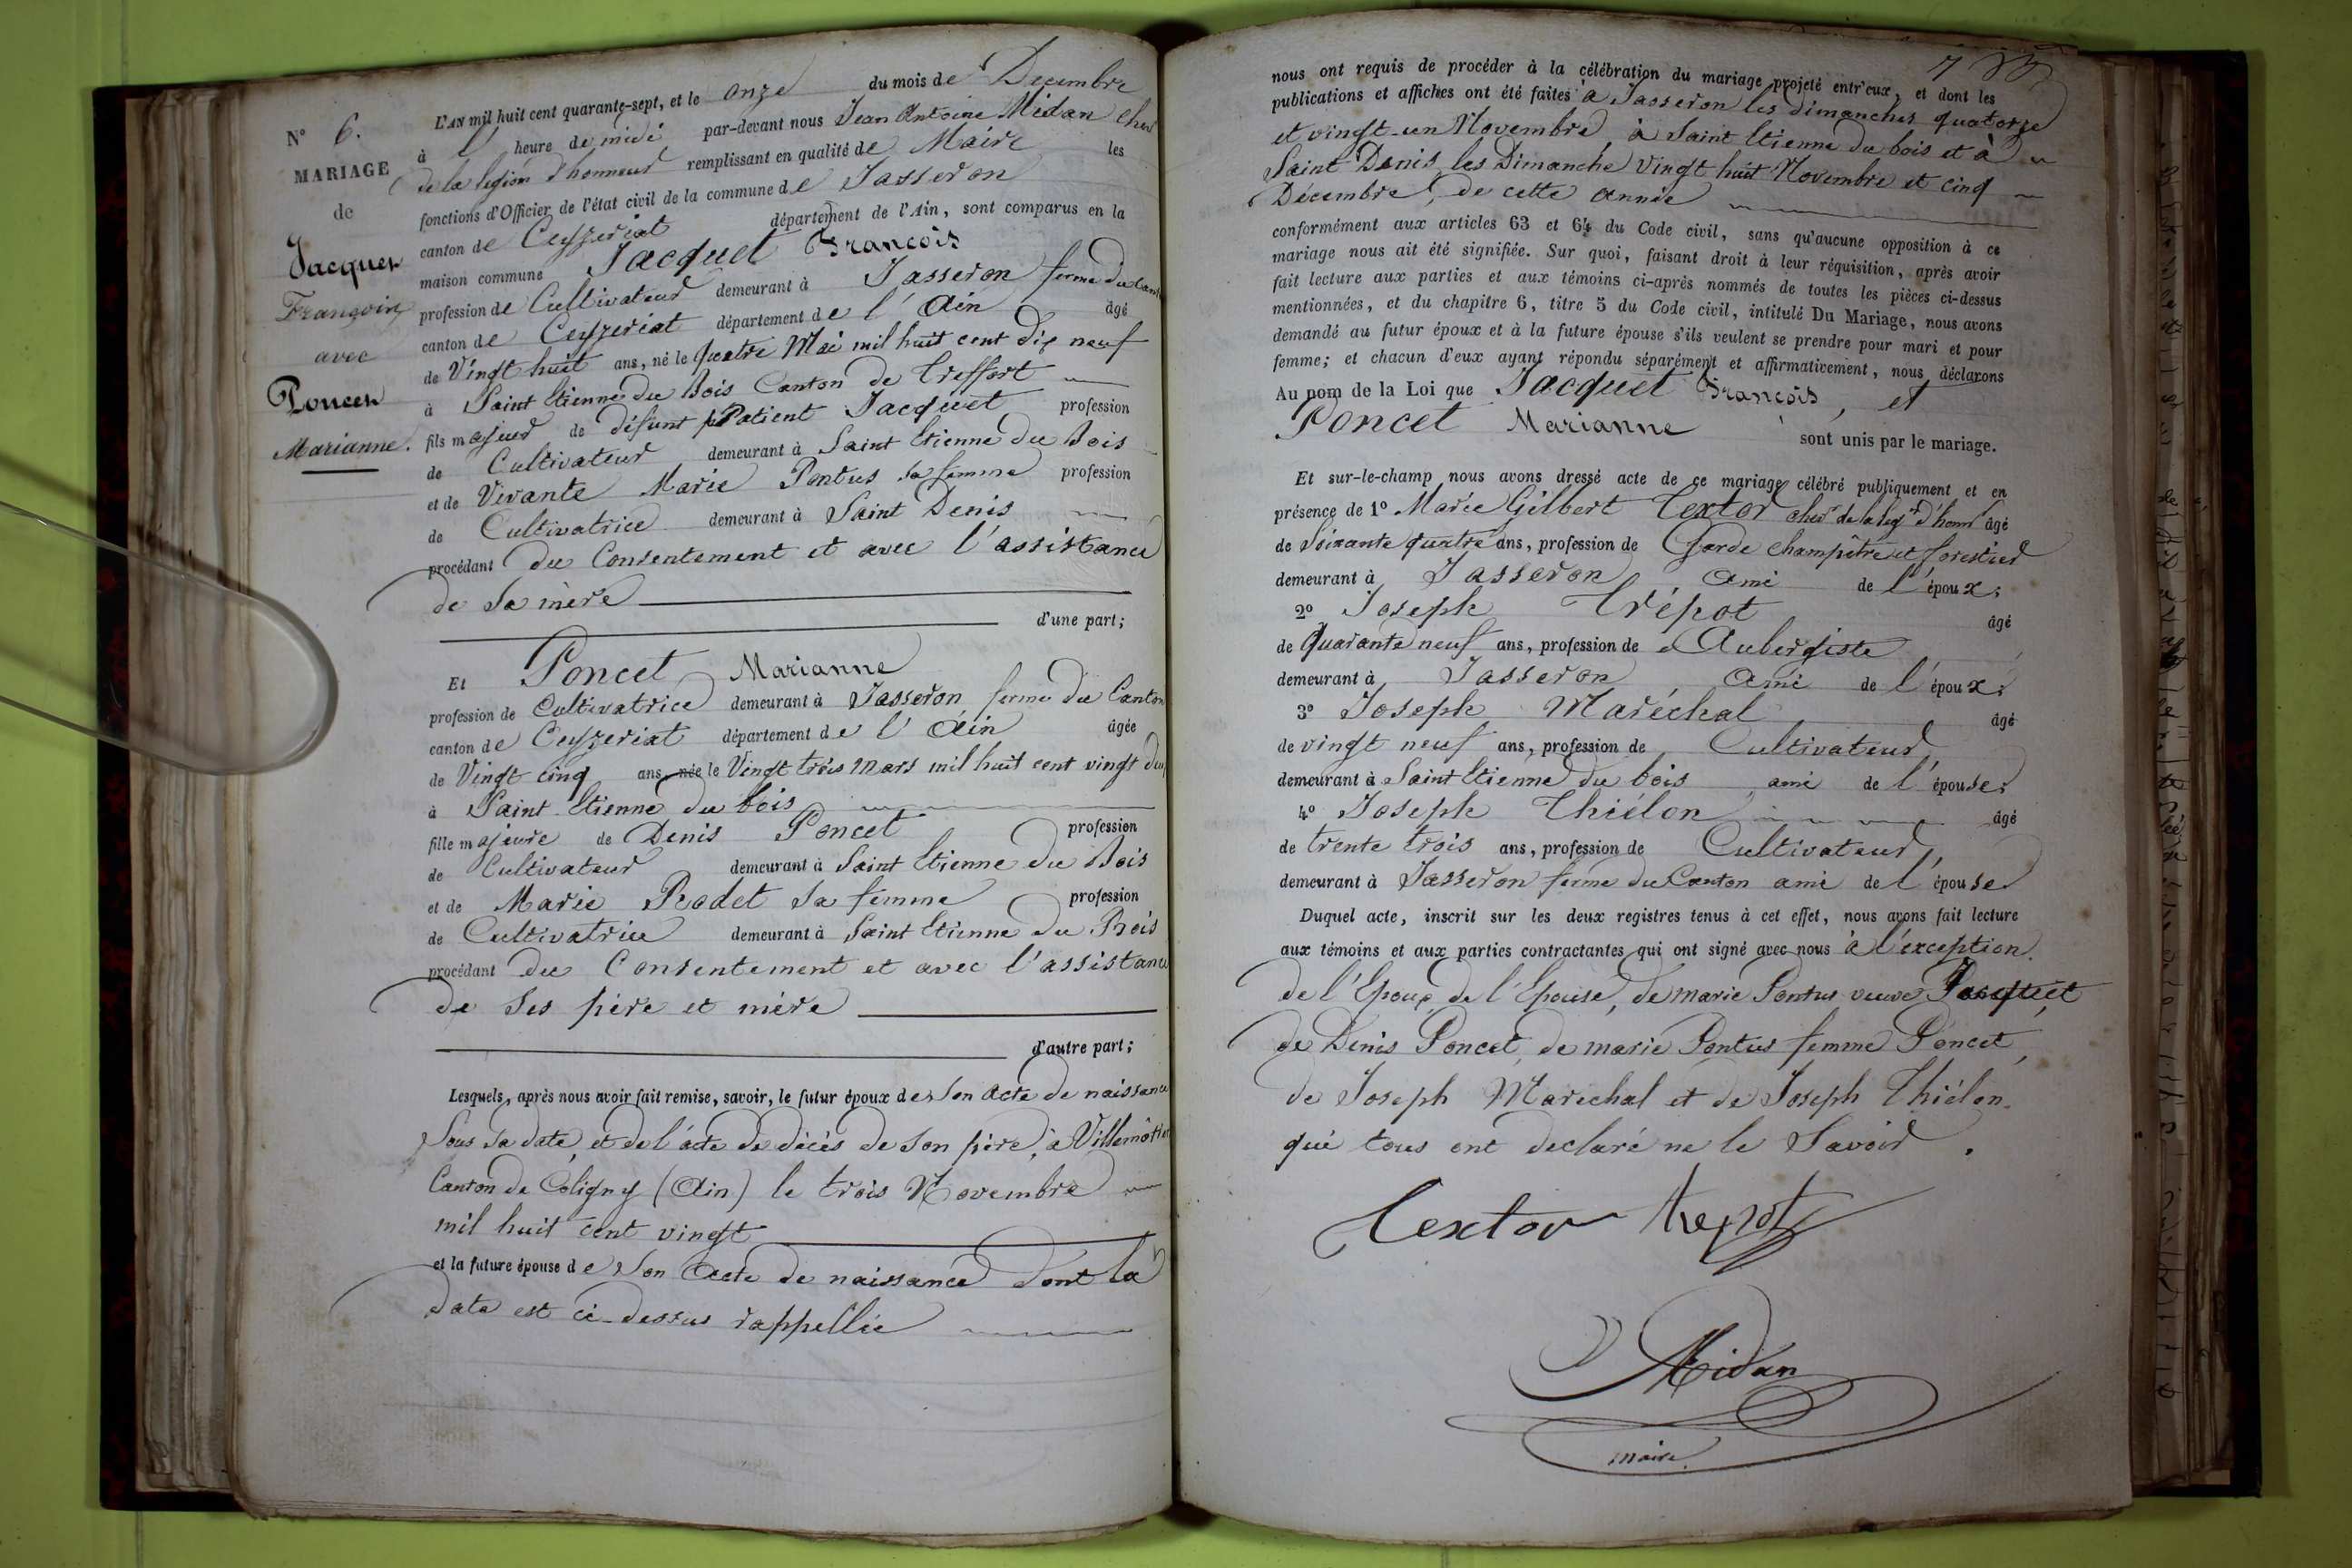 N° 6.
MARIAGE
de
Jacquet
François
avec
Poncet
Marianne.
L'AN mil huit cent quarante-sept, et le onze du mois de Décembre
à l' heure de midi par-devant nous Jean Antoine Midan chev
de la légion d'honneur remplissant en qualité de Maire les
fonctions d'Officier de l'état civil de la commune de Jasseron
canton de Ceyzeriat département de l'Ain, sont comparus en la
maison commune Jacquet François
profession de Cultivateur demeurant à Jasseron ferme du Canton
canton de Ceyzeriat département de l'Ain âgé
de Vingt huit ans, né le quatre Mai mil huit cent dix neuf
à Saint Etienne du Bois Canton de Treffort
fils majeur de défunt Patient Jacquet profession
de Cultivateur demeurant à Saint Etienne du Bois
et de Vivante Marie Pontus sa femme profession
de Cultivatrice demeurant à Saint Denis
procédant du Consentement et avec l'assistance
de sa mère
d'une part;
Et Poncet Marianne
profession de Cultivatrice demeurant à Jasseron ferme du Canton
canton de Ceyzeriat département de l'Ain âgée
de Vingt cinq ans, née le Vingt trois Mars mil huit cent vingt deux
à Saint Etienne du bois
fille majeure de Denis Poncet profession
de Cultivateur demeurant à Saint Etienne du Bois
et de Marie Rodet sa femme profession
de Cultivatrice demeurant à Saint Etienne du Bois
procédant du Consentement et avec l'assistance
de ses père et mère
d'autre part;
Lesquels, après nous avoir fait remise, savoir, le futur époux de son acte de naissance
sous sa date, et de l'acte de décès de son père, à Villemotier
Canton de Coligny (Ain) le trois Novembre
mil huit cent vingt
et la future épouse de son acte de naissance dont la
date est ci-dessus rappellée
nous ont requis de procéder à la célébration du mariage projeté entr'eux, et dont les
publications et affiches ont été faites à Jasseron les dimanches quatorze
et vingt-un Novembre, à Saint Etienne du bois et à
Saint Denis les Dimanche Vingt huit Novembre et cinq
Décembre, de cette année
conformément aux articles 63 et 64 du Code civil, sans qu'aucune opposition à ce
mariage nous ait été signifiée. Sur quoi, faisant droit à leur réquisition, après avoir
fait lecture aux parties et aux témoins ci-après nommés de toutes les pièces ci-dessus
mentionnées, et du chapitre 6, titre 5 du Code civil, intitulé Du Mariage, nous avons
demandé au futur époux et à la future épouse s'ils veulent se prendre pour mari et pour
femme; et chacun d'eux ayant répondu séparément et affirmativement, nous déclarons
Au nom de la Loi que Jacquet François, et
Poncet Marianne sont unis par le mariage.
Et sur-le-champ nous avons dressé acte de ce mariage célébré publiquement et en
présence de 1° Marie Gilbert Textor chev de la leg d'honr âgé
de Soixante quatre ans, profession de Garde champêtre et forestier
demeurant à Jasseron ami de l'époux;
2° Joseph Trépot âgé
de Quarante neuf ans, profession de Aubergiste
demeurant à Jasseron ami de l'époux;
3° Joseph Maréchal âgé
de vingt neuf ans, profession de Cultivateur
demeurant à Saint Etienne du bois ami de l'épouse;
4° Joseph Thiélon âgé
de trente trois ans, profession de Cultivateur,
demeurant à Jasseron ferme du Canton ami de l'épouse
Duquel acte, inscrit sur les deux registres tenus à cet effet, nous avons fait lecture
aux témoins et aux parties contractantes qui ont signé avec nous à l'exception
de l'Epoux, de l'Epouse, de marie Pontus veuve Jacquet
de Denis Poncet, de marie Pontus femme Poncet,
de Joseph Marechal et de Joseph Thiélon
qui tous ont declaré ne le Savoir.
Textor trepot
Midan
maire